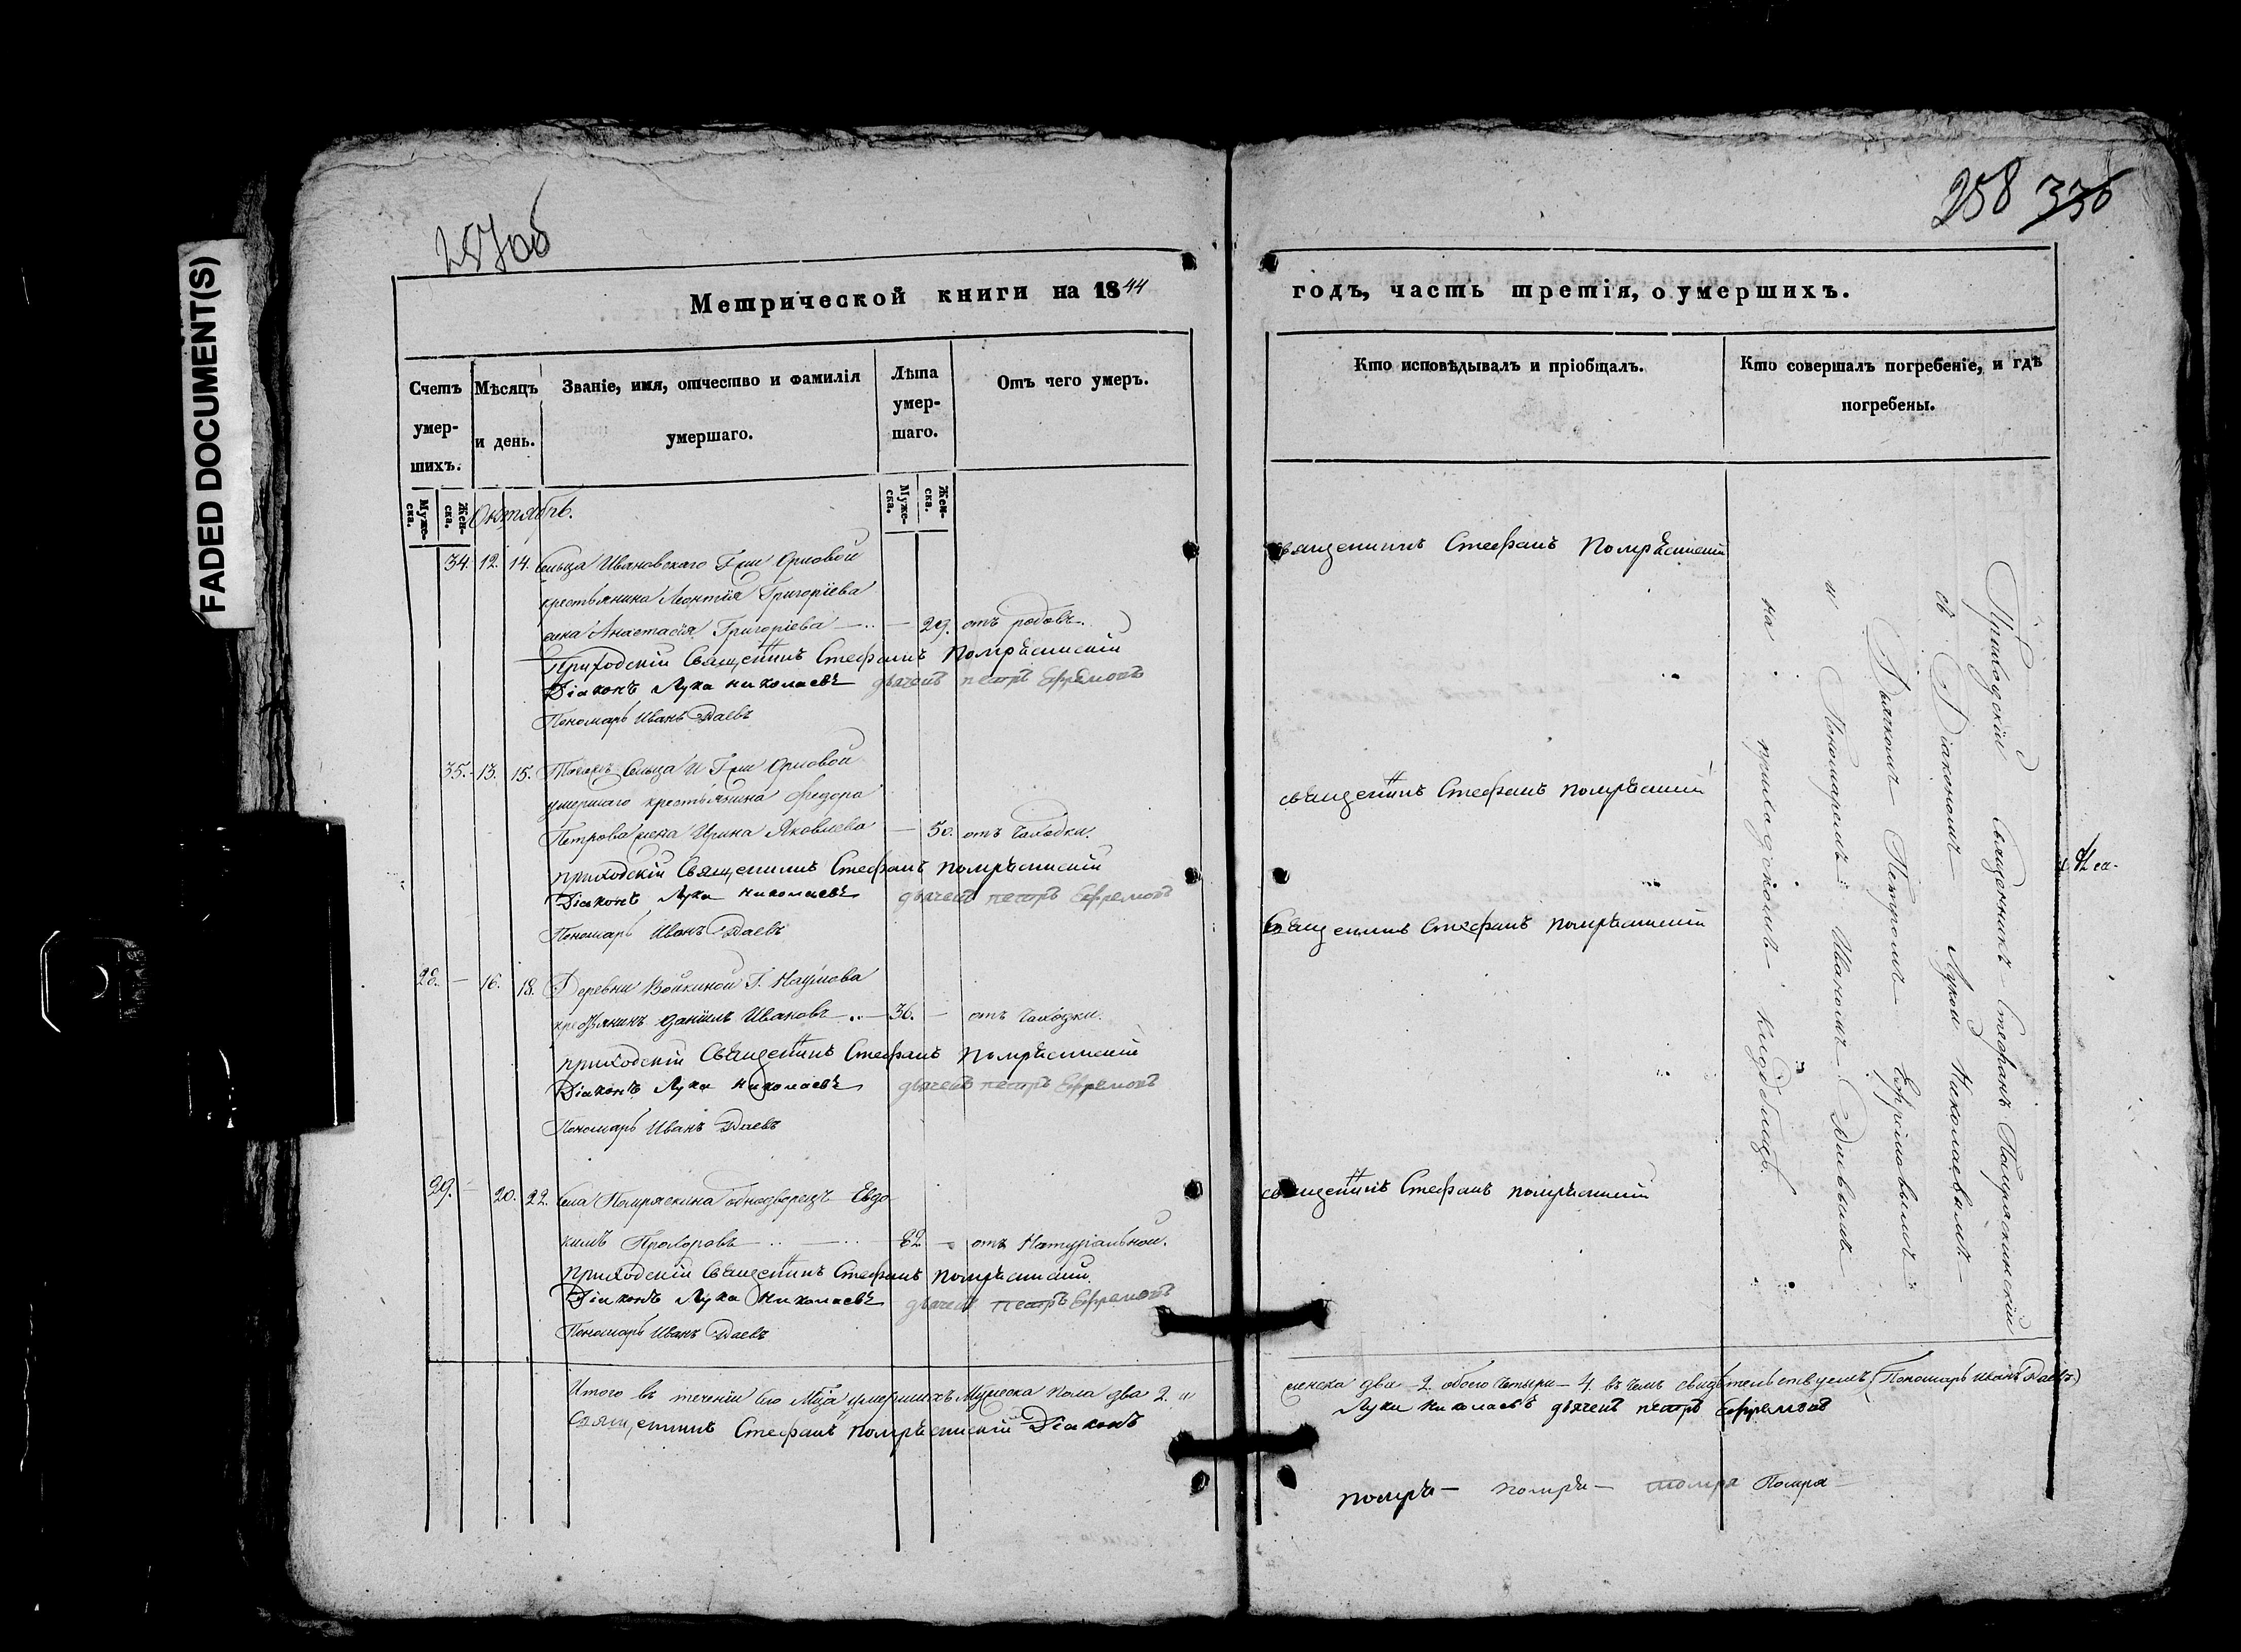 FADED DOCUMENT(S)
257об
258 336
Метрической книги на 1844
годъ, часть третія, о умершихъ.
Счетъ умер-шихъ.
Мѣсяцъ и день.
Званіе, имя, отчество и фамилія умершаго.
Лѣта умер-шаго.
Отъ чего умеръ.
Кто исповѣдывалъ и пріобщалъ.
Кто совершалъ погребеніе, и гдѣ погребены.
Муже-ска.
Жен-ска.
Муже-ска.
Жен-ска.
Октябрь.
34. 12. 14. Сельца Ивановскаго Г-жи Орловой
крестьянина Леонтія Григоріева
жена Анастасія Григоріева — 29. отъ родовъ.
Приходскій Священникъ Стефанъ Помряскинскій
Діаконъ Лука Николаевъ дьячекъ Петръ Ефремовъ
Пономарь Иванъ Даевъ
35. 13. 15. Тогожъ Сельца и Г-жи Орловой
умершаго крестьянина Федора
Петрова жена Ирина Яковлева — 50. отъ чахотки.
приходскій Священникъ Стефанъ Помряскинскій
Діаконъ Лука Николаевъ дьячекъ Петръ Ефремовъ
Пономарь Иванъ Даевъ
28. — 16. 18. Деревни Войкиной Г. Наумова
крестьянинъ Даніилъ Ивановъ — 36. — отъ чахотки.
приходскій Священникъ Стефанъ Помряскинскій
Діаконъ Лука Николаевъ дьячекъ Петръ Ефремовъ
Пономарь Иванъ Даевъ
29. — 20. 22. Села Помряскина однодворецъ Евдо
кимъ Прохоровъ — 82 — отъ Натуральной.
приходскій Священникъ Стефанъ Помряскинскій.
Діаконъ Лука Николаевъ дьячекъ Петръ Ефремовъ
Пономарь Иванъ Даевъ
Итого въ теченіи сего М-ца умершихъ Мужеска пола два 2. и
Священникъ Стефанъ Помряскинскій Діаконъ
Священникъ Стефанъ Помряскинскій
священникъ Стефанъ Помряскинскій
Священникъ Стефанъ Помряскинскій
священникъ Стефанъ Помряскинскій
Приходскій Священникъ Стефанъ Помряскинскій
съ Діакономъ Лукой Николаевымъ
Дьячкомъ Петромъ Ефремовымъ
и Пономаремъ Иваномъ Даевымъ
на приходскомъ кладбищѣ.
женска два 2. обоего четыри — 4. въ чемъ свидѣтельствуемъ (Пономарь Иванъ Даевъ)
Лука Николаевъ дьячекъ Петръ Ефремовъ
помря — помря — помря Помря —